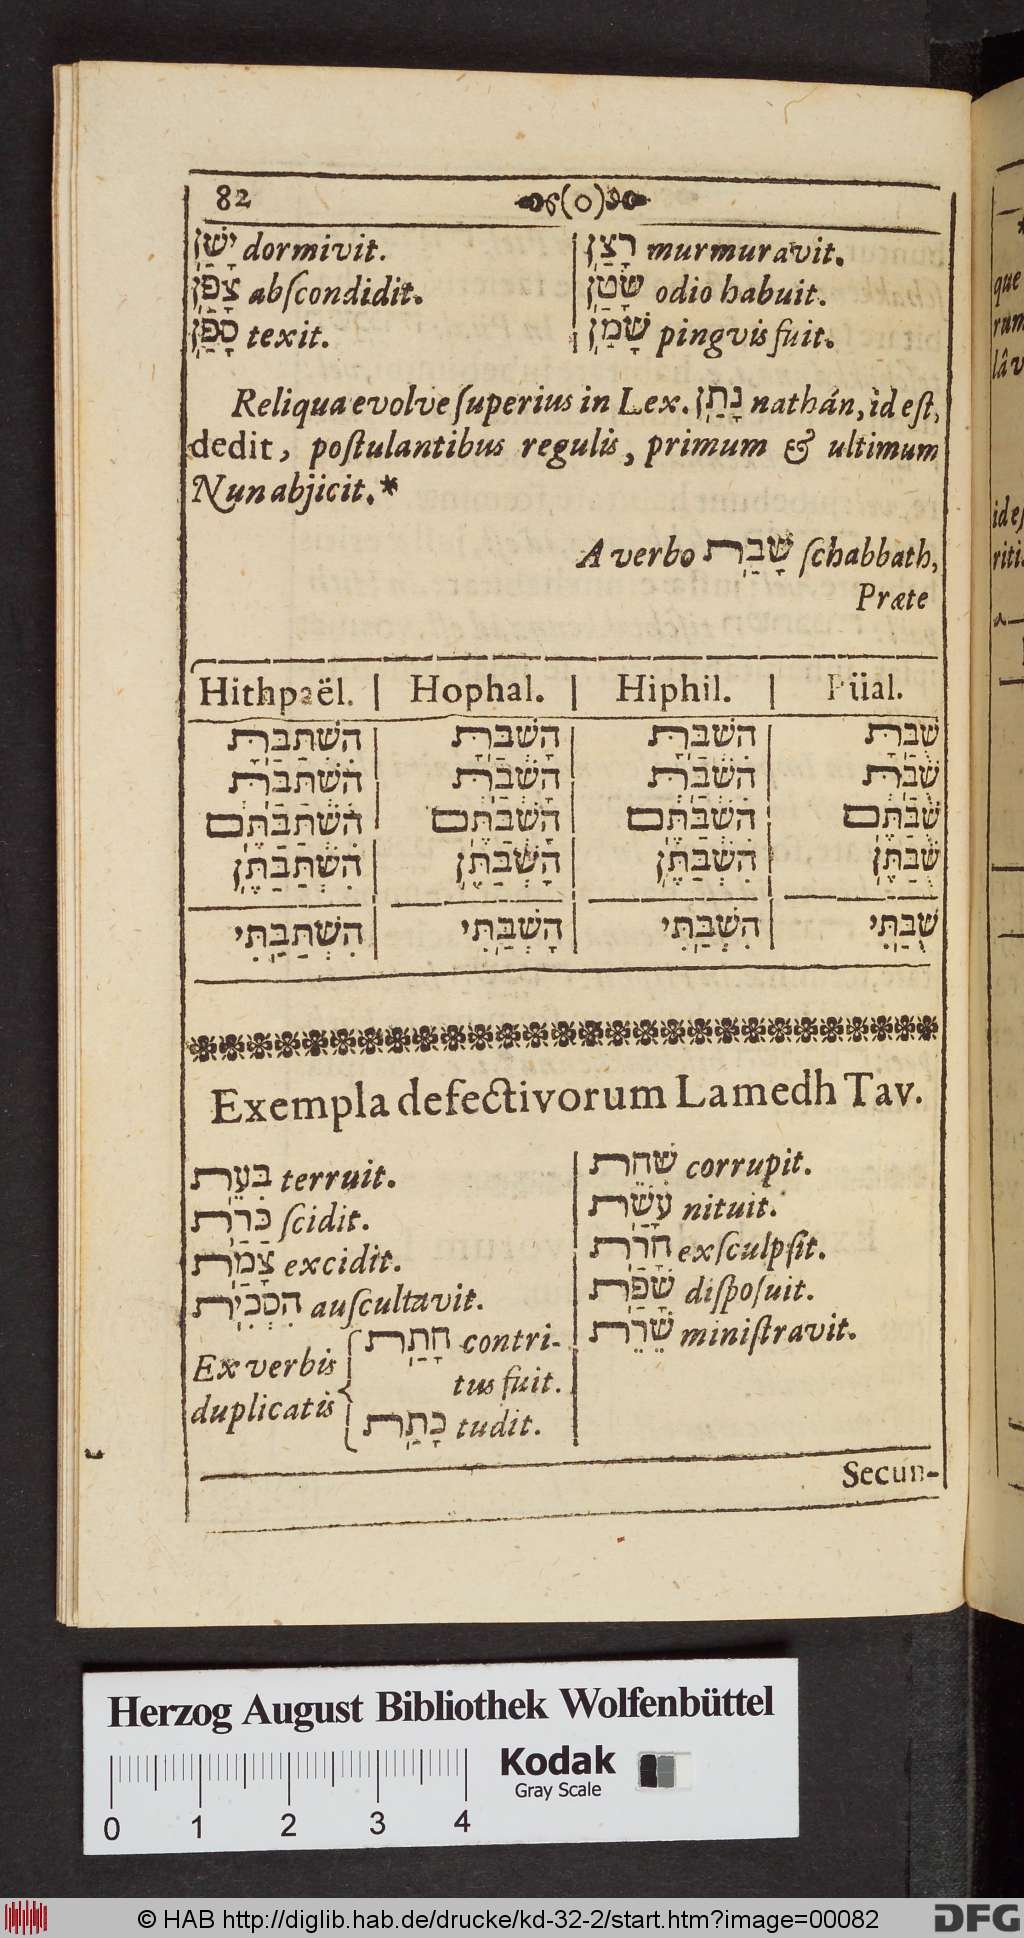 82 (o)
יָשַׁן dormivit. | רָצַן murmuravit.
צָפַן abſcondidit. | שָׂטַן odio habuit.
סָפַן texit. | שָׁמַן pingvis fuit.
Reliqua evolve ſuperius in Lex. נָתַן nathán, id eſt,
dedit, poſtulantibus regulis, primum & ultimum
Nun abjicit.*
A verbo שָׁבַת ſchabbath,
Præte
Hithpaël. | Hophal. | Hiphil. | Püal.
הִשְׁתַּבַּתָּ | הָשְׁבַּתָּ | הִשְׁבַּתָּ | שֻׁבַּתָּ
הִשְׁתַּבַּתְּ | הָשְׁבַּתְּ | הִשְׁבַּתְּ | שֻׁבַּתְּ
הִשְׁתַּבַּתֶּם | הָשְׁבַּתֶּם | הִשְׁבַּתֶּם | שֻׁבַּתֶּם
הִשְׁתַּבַּתֶּן | הָשְׁבַּתֶּן | הִשְׁבַּתֶּן | שֻׁבַּתֶּן
הִשְׁתַּבַּתִּי | הָשְׁבַּתִּי | הִשְׁבַּתִּי | שֻׁבַּתִּי
Exempla defectivorum Lamedh Tav.
בִּעֵת terruit. | שִׁחֵת corrupit.
כָּרַת ſcidit. | עָשַׁת nituit.
צָמַת excidit. | חָרַת exſculpſit.
הִסְכִּית auſcultavit. | שָׁפַת diſpoſuit.
Ex verbis duplicatis { חָתַת contri- | שֵׁרֵת miniſtravit.
tus fuit.
כָּתַת tudit.
Secun-
Herzog August Bibliothek Wolfenbüttel
Kodak
Gray Scale
0 1 2 3 4
© HAB http://diglib.hab.de/drucke/kd-32-2/start.htm?image=00082
DFG